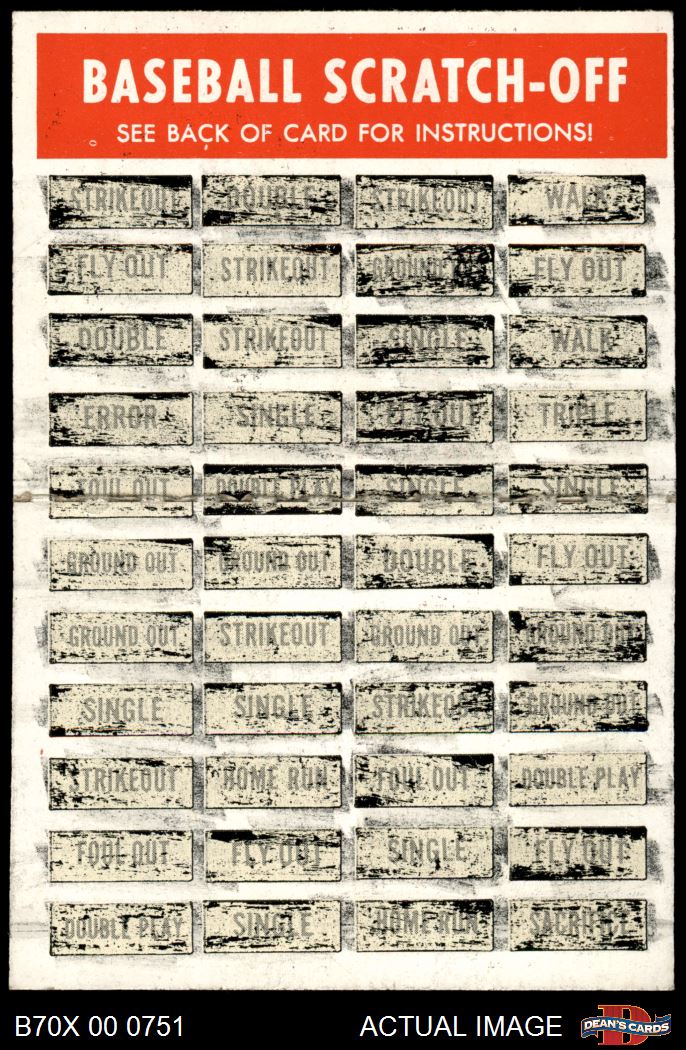 BASEBALL SCRATCH-OFF
SEE BACK OF CARD FOR INSTRUCTIONS!
STRIKEOUT DOUBLE STRIKEOUT WALK
FLY OUT STRIKEOUT GROUND OUT FLY OUT
DOUBLE STRIKEOUT SINGLE WALK
ERROR SINGLE FLY OUT TRIPLE
FOUL OUT DOUBLE PLAY SINGLE SINGLE
GROUND OUT GROUND OUT DOUBLE FLY OUT
GROUND OUT STRIKEOUT GROUND OUT GROUND OUT
SINGLE SINGLE STRIKEOUT GROUND OUT
STRIKEOUT HOME RUN FOUL OUT DOUBLE PLAY
FOUL OUT FLY OUT SINGLE FLY OUT
DOUBLE PLAY SINGLE HOME RUN SACRIFICE
B70X 00 0751 ACTUAL IMAGE DEAN'S CARDS